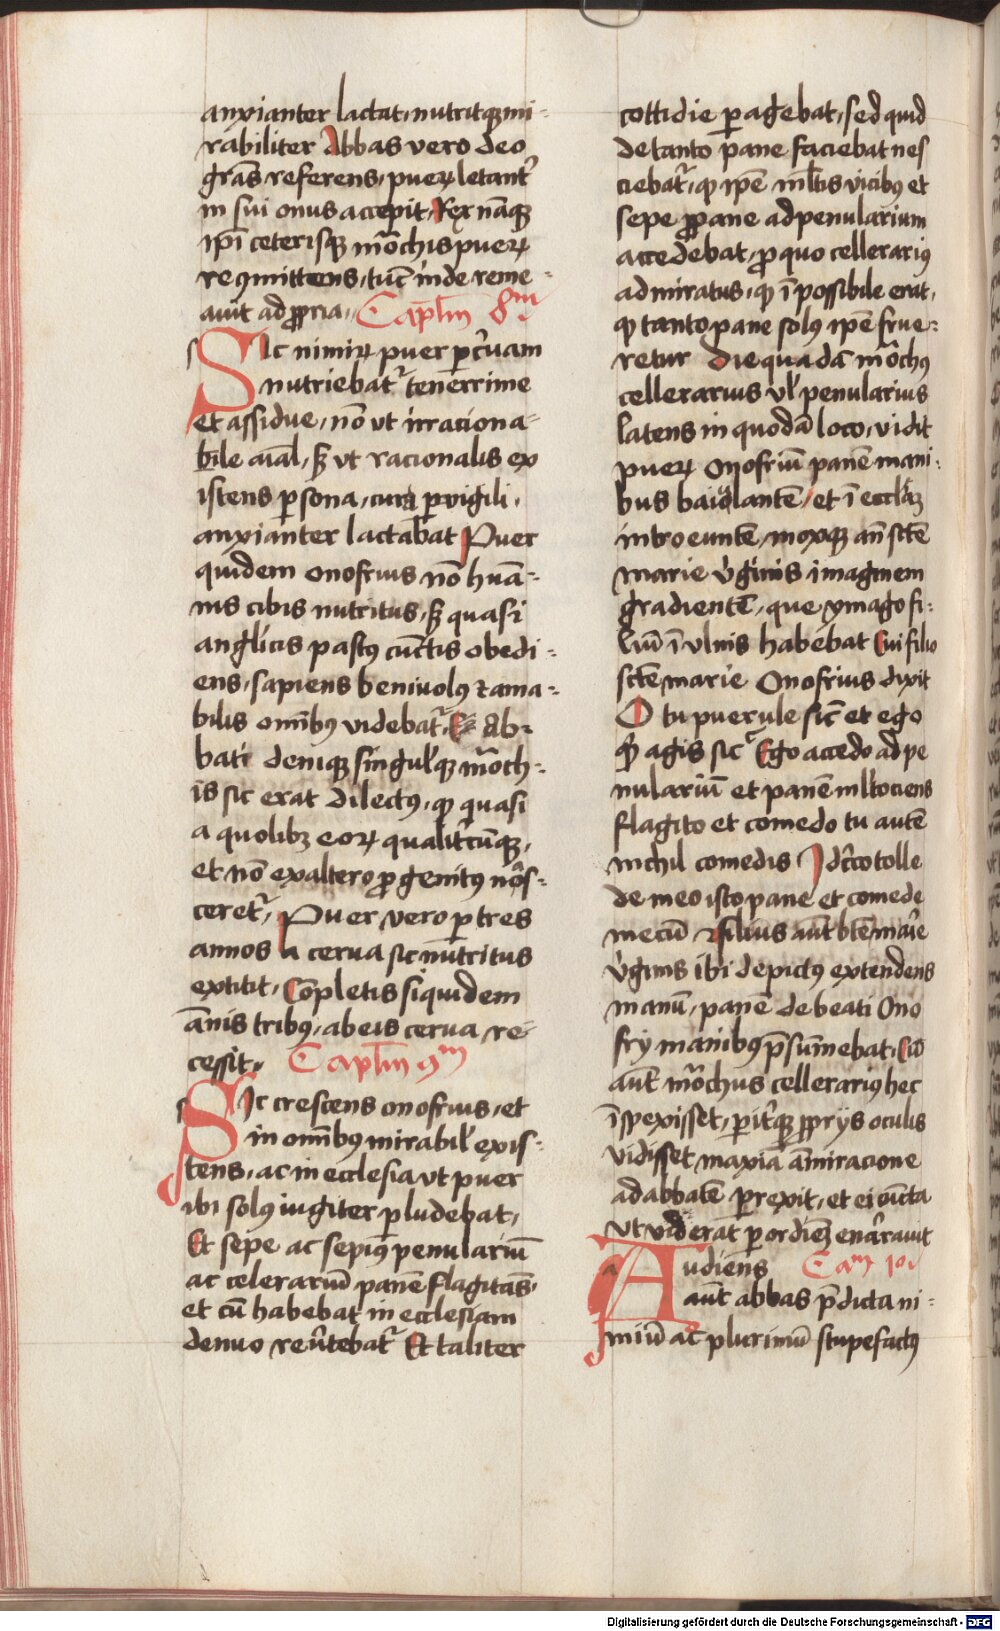 anxianter lactat, nutritq mi-
rabiliter Abbas vero deo
grās referens, pueꝝ letantr̄
in sui onus accepit, Rex nāqꝫ
ip̄i ceterisqꝫ mōchis pueꝝ
reqmittens, tūc inde reme-
auit ad ꝓpria, Cap̄lm 8m
Sic nimiꝝ puer ꝑ cˀuam
nutriebatr̄ tenerrime
et assidue, nō vt irraciona-
bile aīal, sꝫ vt racionalis ex
istens ꝑsona, cura ꝑuigili,
anxianter lactabat Puer
quidem onofrius nō huā-
nis cibis nutritus, sꝫ quasi
anglicis pastꝰ cūctis obedi-
ens, sapiens beniuolꝰ ⁊ ama-
bilis omībꝰ videbatr̄, Ab-
bati deniqꝫ singul'qꝫ mōch-
is sic erat dilectꝰ, qꝫ quasi
a quolibꝫ eoꝝ qualitˀcūqꝫ,
et nō ex altero ꝓgenitꝰ nōs-
ceretr̄, Puer vero ꝑ tres
annos a cerua sic nutritus
extitit, Cōpletis siquidem
ānis tribꝰ, ab eis cerua re-
cessit, Cap̄lm 9m
Sic crescens onofrius, et
in omībꝰ mirabil' exis-
tens, ac in ecclesia vt puer
ibi solꝰ iugiter ꝑludebat,
Et sepe ac sepiꝰ penulariū
ac celerariū panē flagitās,
et cū habebat in ecclesiam
denuo reuˀtebatr̄ Et taliter
cottidie ꝑagebat, sed quid
de tanto pane faciebat nes
ciebatr̄, qꝫ ip̄e ml̄tis vicibꝰ et
sepe ꝓ pane ad penularium
accedebat, ꝓ quo cellerariꝰ
admiratus, qꝫ īpossibile erat,
qꝫ tanto pane solꝰ ip̄e frue-
retur Die quadā mōchꝰ
cellerarius vl' penularius
latens in quodā loco, vidit
pueꝝ Onofriū panē mani-
bus baiolantē, et ī eccl̄iaꝫ
introeuntē, moxqꝫ an̄ sctē
marie vˀginis imaginem
gradientē, que ymago fi-
liū ī vlnis habebat Cui filio
sctē marie Onofrius dixit
O tu puerule sic et ego
qˀ agis sic Ego accedo ad pe
nulariū et panē ml̄tociens
flagito et comedo tu autē
nichil comedis Idcˀco tolle
de meo isto pane et comede
mecū ⁊ filius aūt btē marie
vˀginis ibi depictꝰ extendens
manū, panē de beati Ono
fry manibꝰ p̄sumebat, Cū
aūt mōchus cellerariꝰ hec
īspexisset, ꝑitˀqꝫ ꝓprys oculis
vidisset maxīa āmiracione
ad abbatē ꝑrexit, et ei cūcta
vt viderat ꝑ ordinē enarrauit
Audiens Cam 10m
aūt abbas p̄dicta ni-
miū ac plurimū stupefactꝰ
Digitalisierung gefördert durch die Deutsche Forschungsgemeinschaft - DFG